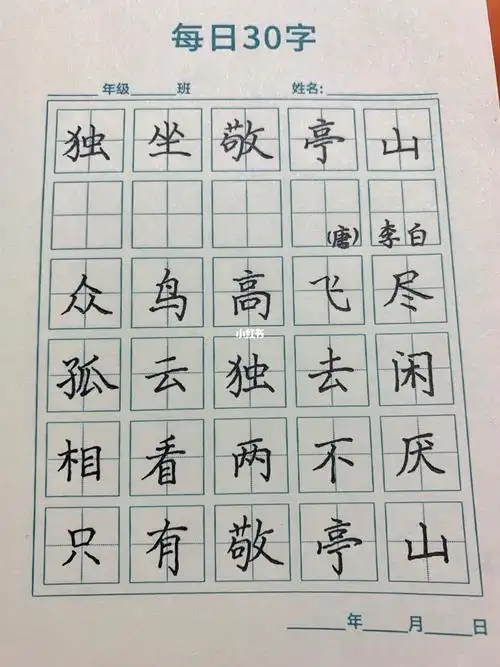 每日30字
______年级______班 姓名:______________
独坐敬亭山
(唐) 李白
众鸟高飞尽
孤云独去闲
小红书
相看两不厌
只有敬亭山
______年____月____日